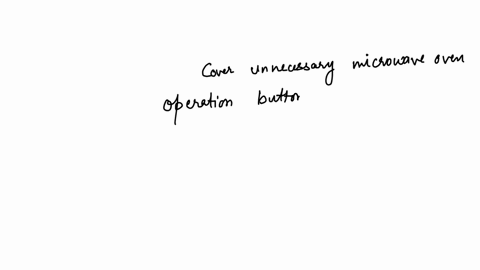 Cover unnecessary microwave oven
operation button